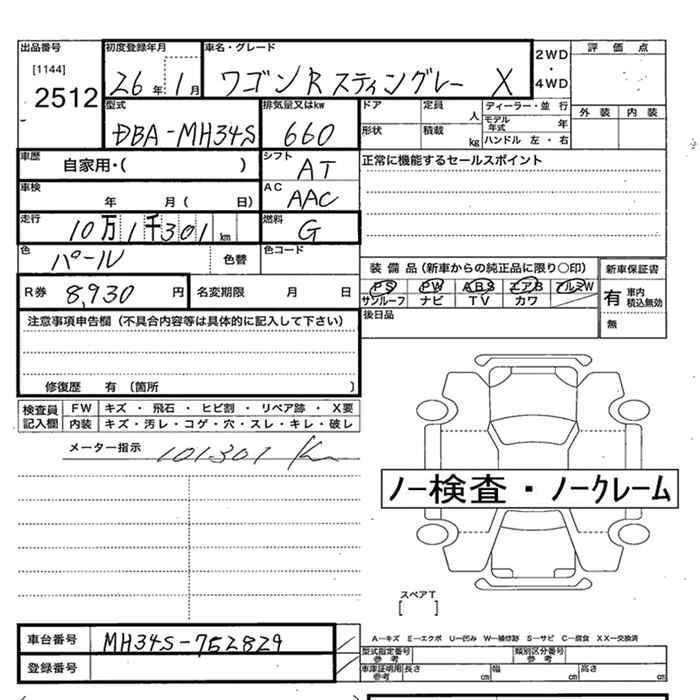 出品番号 初度登録年月 車名・グレード 2WD ・ 4WD 評価点
[1144]
2512 26年 1月 ワゴンR スティングレー X
型式 排気量又はkw ドア 定員 人 ディーラー・並行 外装 内装
DBA-MH34S 660 形状 積載 kg モデル年式 年 ハンドル 左・右
車歴 自家用・( ) シフト AT 正常に機能するセールスポイント
車検 年 月( 日) AC AAC
走行 10万1千301km 燃料 G
色 パール 色替 色コード
装備品(新車からの純正品に限り○印) 新車保証書
R券 8,930円 名変期限 月 日 PS PW ABS エアB アルミW 有 車内 積込無効
サンルーフ ナビ TV カワ
注意事項申告欄(不具合内容等は具体的に記入して下さい) 後日品 無
修復歴 有(箇所 )
検査員記入欄 FW キズ・飛石・ヒビ割・リペア跡・X要
内装 キズ・汚レ・コゲ・穴・スレ・キレ・破レ
メーター指示 101,301 Km
ノー検査・ノークレーム
スペアT
[ ]
車台番号 MH34S-752829 A―キズ E―エクボ U―凹み W―補修跡 S―サビ C―腐食 XX―交換済
型式指定番号 参考 類別区分番号 参考
登録番号 車庫証明用 参考 長さ cm 幅 cm 高さ cm